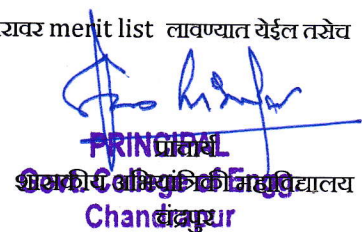 रावर merit list लावण्यात येईल तसेच
PRINCIPAL
प्राचार्य
Govt. College of Engg.
शासकीय अभियांत्रिकी महाविद्यालय
Chandrapur
चंद्रपूर